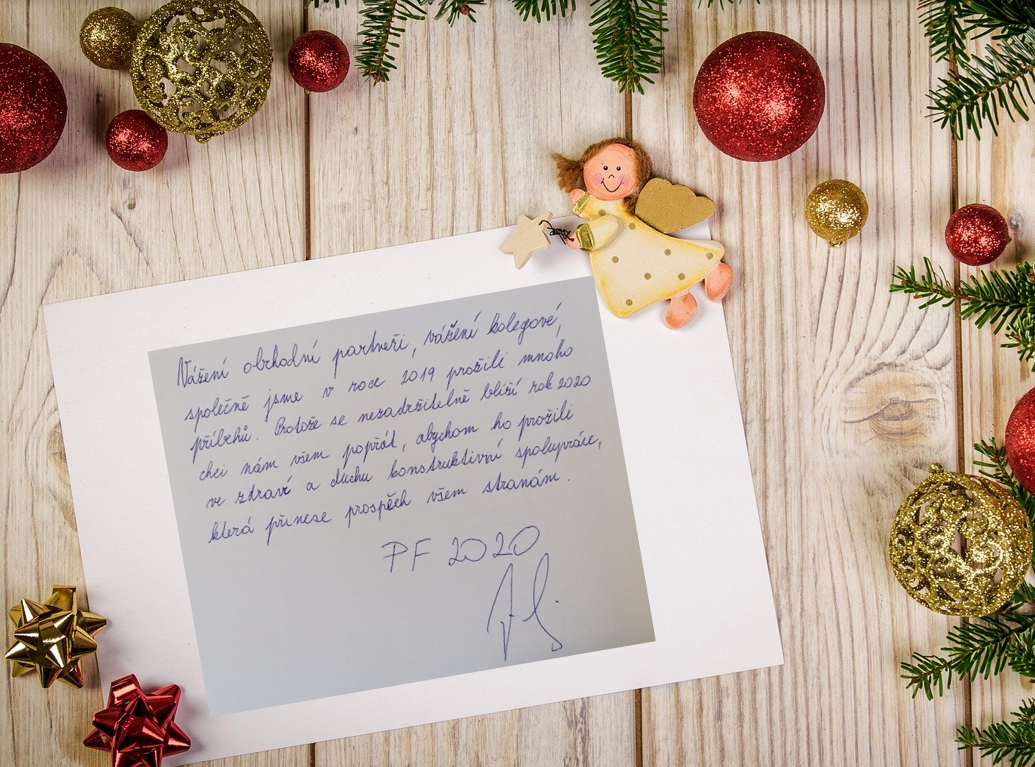 Vážení obchodní partneři, vážení kolegové,
společně jsme v roce 2019 prožili mnoho
příběhů. Protože se nezadržitelně blíží rok 2020
chci nám všem popřát, abychom ho prožili
ve zdraví a duchu konstruktivní spolupráce,
která přinese prospěch všem stranám.
PF 2020